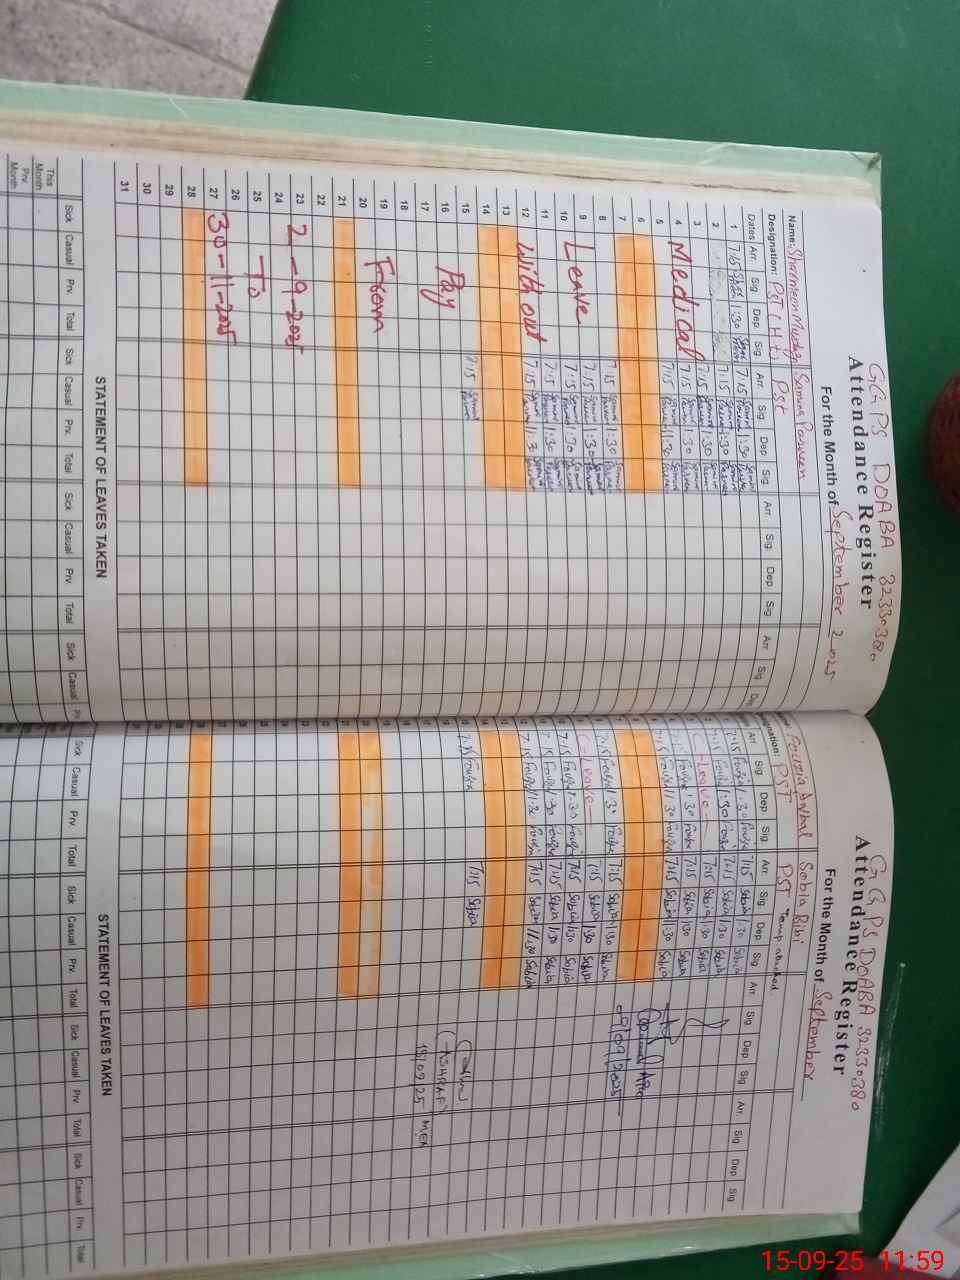 GGPS DOABA 32330380
Attendance Register
For the Month of September 2025
Name: Sharmeen Mushtaq Samina Parveen
Designation: PST (H.t) Pst
Dates Arr. Sig Dep Sig Arr. Sig Dep Sig Arr Sig Dep Sig Arr Sig
1 7:15 1:30 7:15 Samina Parveen 1:30 Samina Parveen
2 7:15 Samina Parveen 1:30 Samina Parveen
3 7:15 Samina Parveen 1:30 Samina Parveen
4 Medical 7:15 Samina Parveen 1:30 Samina Parveen
5 7:15 Samina Parveen 1:30 Samina Parveen
6
7
8 7:15 Samina Parveen 1:30 Samina Parveen
9 Leave 7:15 Samina Parveen 1:30 Samina Parveen
10 7:15 Samina Parveen 1:30 Samina Parveen
11 7:15 Samina Parveen 1:30 Samina Parveen
12 With out 7:15 Samina Parveen 1:30 Samina Parveen
13
14
15 7:15 Samina Parveen
16 Pay
17
18
19 From
20
21
22
23 2-9-2025
24
25 To
26
27 30-11-2025
28
29
30
31
STATEMENT OF LEAVES TAKEN
Sick Casual Prv. Total Sick Casual Prv. Total Sick Casual Prv. Total Sick Casual
This Month
Prv. Month
GGPS DOABA 32330380
Attendance Register
For the Month of September
Fouzia Sobia Bibi
Designation: PST PST Temp attached.
Arr Sig Dep Sig Arr Sig Dep Sig Arr Sig Dep Sig Arr Sig Dep Sig
7:15 Fouzia 1:30 Fouzia 7:15 Sobia 1:30 Sobia
7:15 Fouzia 1:30 Fouzia 7:15 Sobia 1:30 Sobia
C-Leave 7:15 Sobia 1:30 Sobia
7:15 Fouzia 1:30 Fouzia 7:15 Sobia 1:30 Sobia
7:15 Fouzia 1:30 Fouzia 7:15 Sobia 1:30 Sobia
7:15 Fouzia 1:30 Fouzia 7:15 Sobia 1:30 Sobia
C-Leave 7:15 Sobia 1:30 Sobia
7:15 Fouzia 1:30 Fouzia 7:15 Sobia 1:30 Sobia
7:15 Fouzia 1:30 Fouzia 7:15 Sobia 1:30 Sobia
7:15 Fouzia 1:30 Fouzia 7:15 Sobia 1:30 Sobia
7:15 Fouzia 7:15 Sobia
09/2025
ASHRAF
15/09/25 MEA
STATEMENT OF LEAVES TAKEN
Sick Casual Prv. Total Sick Casual Prv Total Sick Casual Prv Total Sick Casual Prv Total
15-09-25 11:59